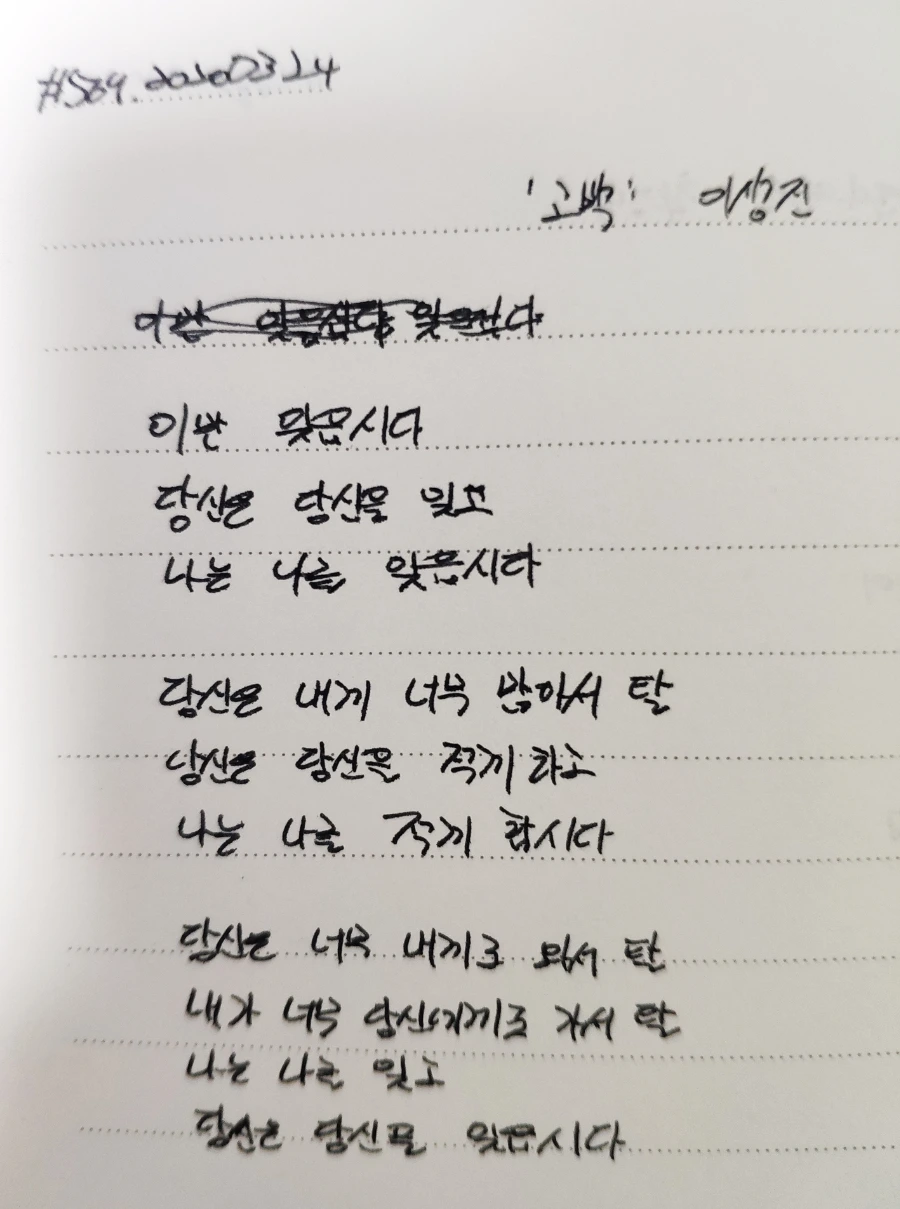 #569. 20200324
'고백' 이생진
이만 잊읍시다
당신은 당신을 잊고
나는 나를 잊읍시다
당신은 내게 너무 많아서 탈
당신은 당신을 적게 하고
나는 나를 적게 합시다
당신은 너무 내게로 와서 탈
내가 너무 당신에게로 가서 탈
나는 나를 잊고
당신은 당신을 잊읍시다